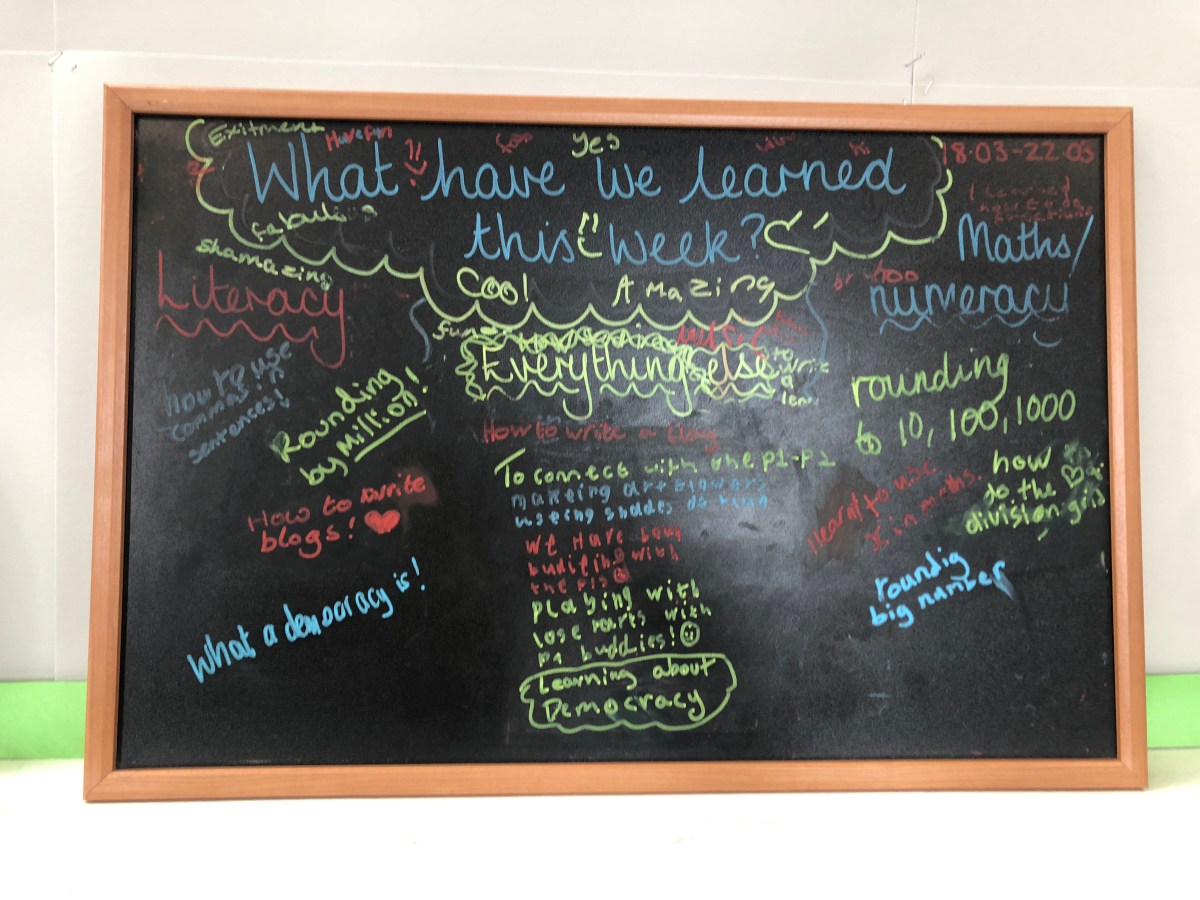 Exitment
Have fun
Yes
hi
18.03-22.03
What have we learned
this week?
fabulous
shamazing
Cool Amazing
I learned
how to do
Literacy
how to use
commas in
sentences!
Rounding
by Million!
How to write
blogs! ❤
What a democracy is!
fun
Everything else
to
write
a
How to write a
To connect with the P1-P2
makeing art flowers
useing shades
We Have been
building with
the P1s
Playing with
lose parts with
P1 buddies! ☺
Learning about
Democracy
Maths/
numeracy
rounding
to 10, 100, 1000
learnt to use
X in maths.
how
to do the
division grid
roundig
big number